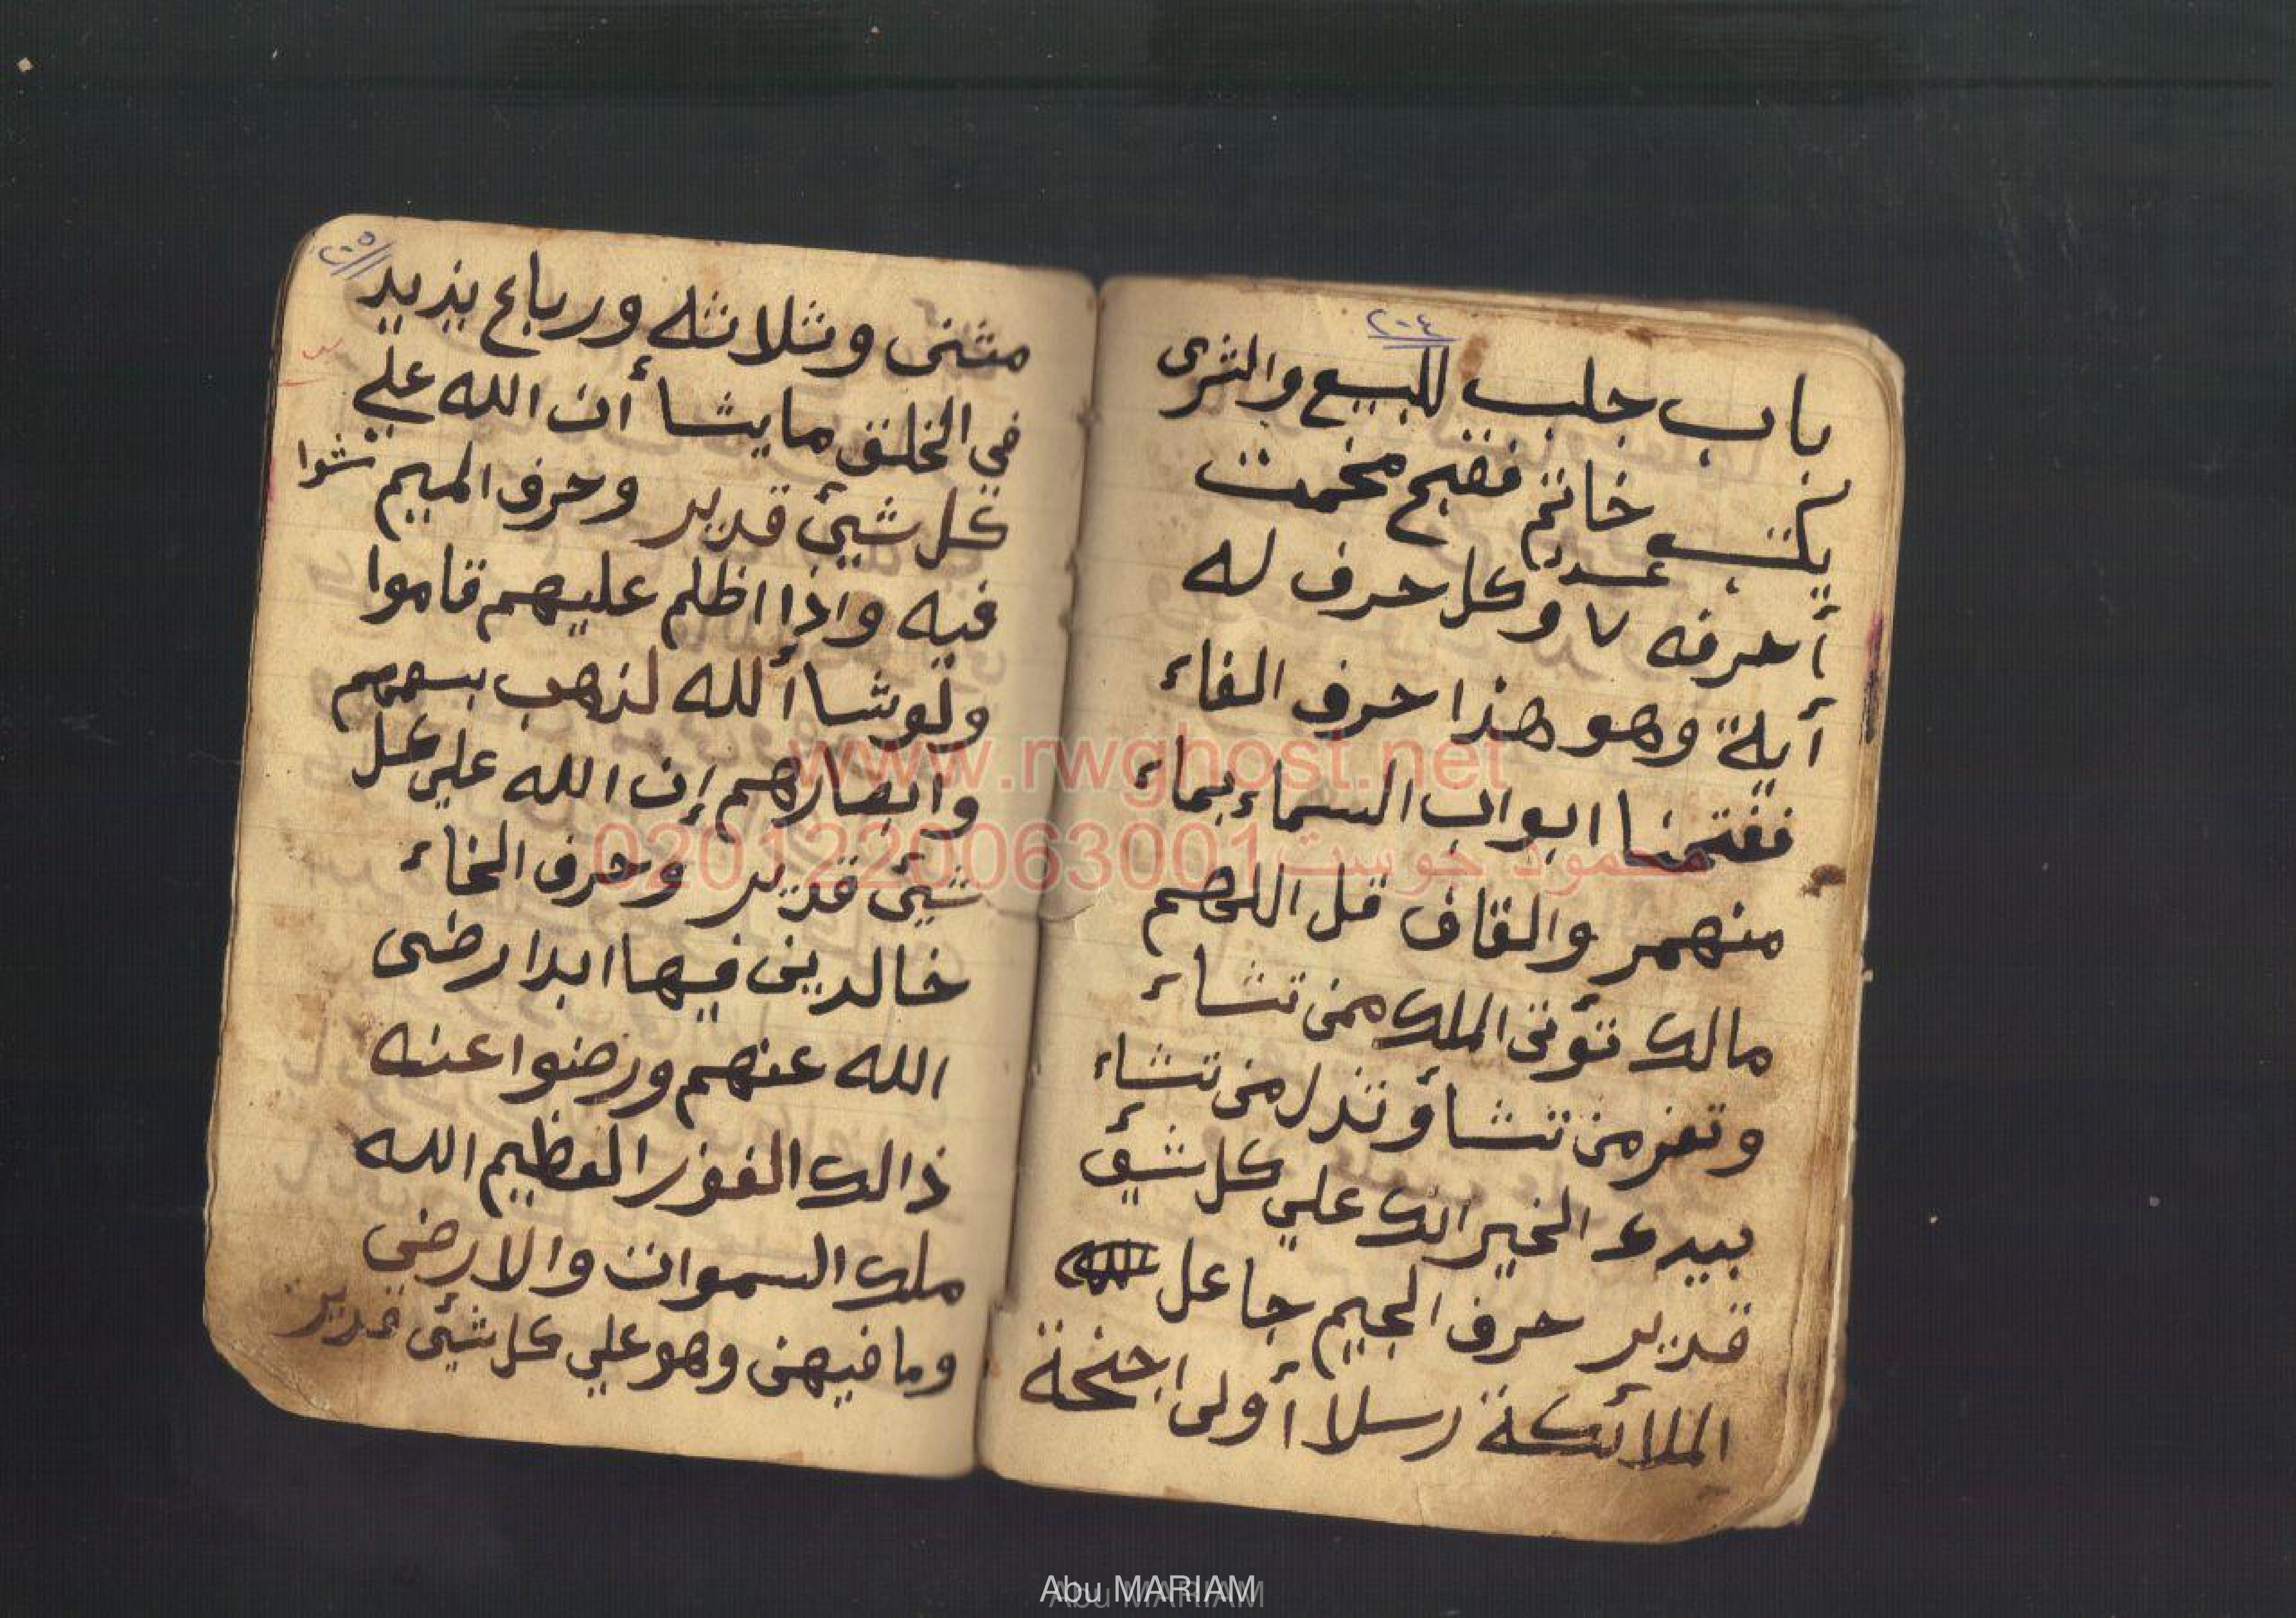 ٢٠٤
باب جلب للبيع والشرى
يكتب خاتم فقج مخمت
عدد
أحرفه ٧ وكل حرف له
أية وهو هذا حرف الفاء
ففتحنا ابواب السماء بماء
منهمر والقاف قل اللهم
مالك تؤتى الملك من تشاء
وتعز من تشاؤ وتذل من تشاء
بيدك الخير انك علي كل شيئ
قدير حرف الجيم جاعل
الملائكة رسلا أولى اجنحة
٢٠٥
مثنى وثلاثه ورباع يذيد
في الخلق ما يشاء أن الله علي
كل شيئ قدير وحرف الميم مشوا
فيه واذا اظلم عليهم قاموا
ولو شاء الله لذهب بسمهم
وابصارهم إن الله علي كل
شيئ قدير وحرف الخاء
خالدين فيها ابدا رضى
الله عنهم ورضوا عنه
ذالك الفوز العظيم الله
ملك السموات والارض
وما فيهن وهو علي كل شيئ قدير
www.rwghost.net
محمود جوست 0201220063001
Abu MARIAM